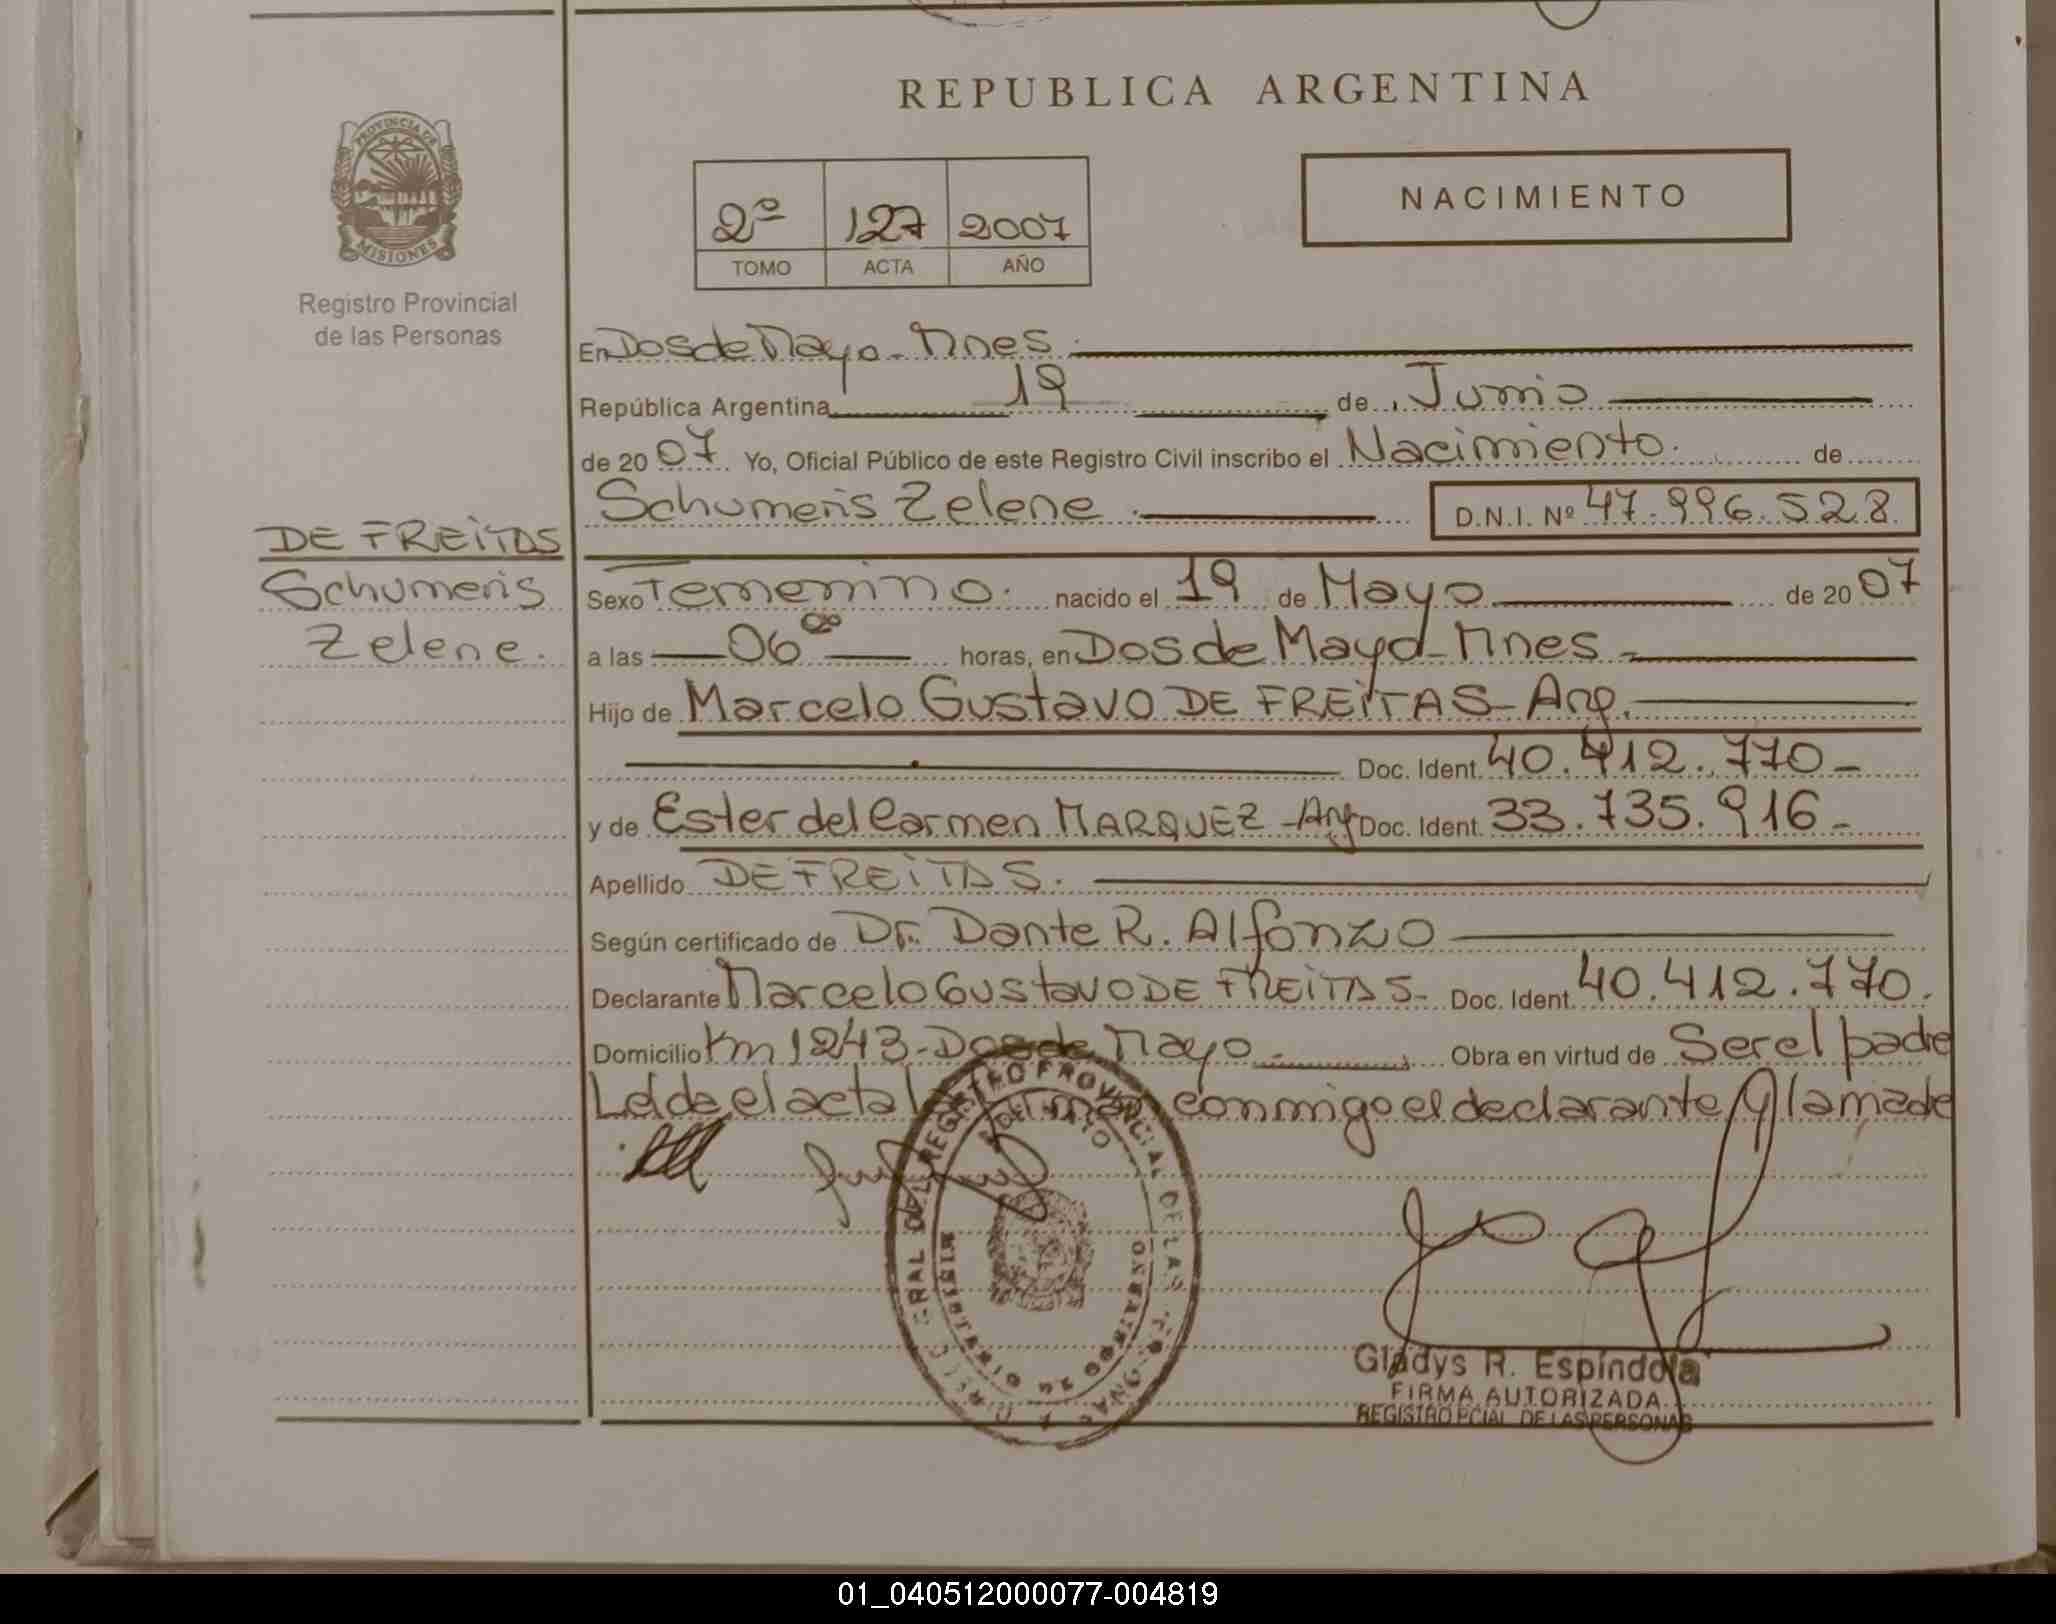 REPUBLICA ARGENTINA
PROVINCIA DE
MISIONES
Registro Provincial
de las Personas
2º 127 2007
TOMO ACTA AÑO
NACIMIENTO
En Dos de Mayo - Mnes.
República Argentina 19 de Junio
de 2007 Yo, Oficial Público de este Registro Civil inscribo el Nacimiento. de
Schumeris Zelene. D.N.I. Nº 47.996.528
DE FREITAS
Schumeris
Zelene.
Sexo Femenino. nacido el 19 de Mayo de 2007
a las 06 00 horas, en Dos de Mayo - Mnes -
Hijo de Marcelo Gustavo DE FREITAS - Arg.
Doc. Ident. 40.412.770 -
y de Ester del Carmen MARQUEZ - Arg Doc. Ident. 33.735.916 -
Apellido DE FREITAS.
Según certificado de Dr. Dante R. Alfonzo
Declarante Marcelo Gustavo DE FREITAS - Doc. Ident. 40.412.770.
Domicilio Km 1243 - Dos de Mayo - Obra en virtud de Ser el padre
Leída el acta conmigo el declarante y la madre
REGISTRO PROVINCIAL DE LAS
2 DE MAYO
Gladys R. Espíndola
FIRMA AUTORIZADA
REGISTRO PCIAL. DE LAS PERSONAS
01_040512000077-004819